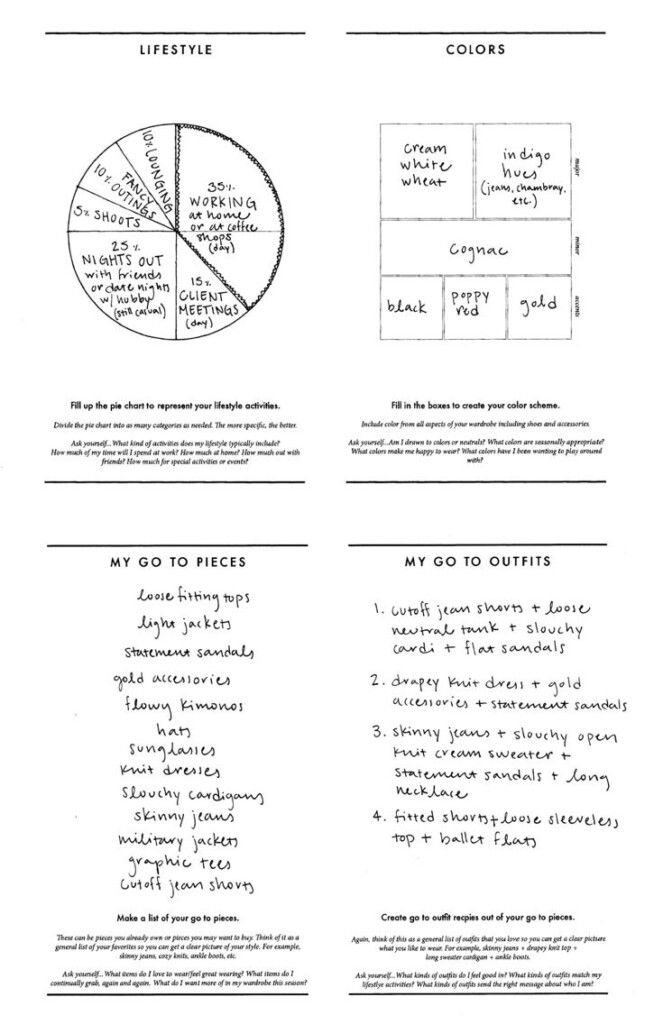 LIFESTYLE
10% LOUNGING
10% FANCY OUTINGS
5% SHOOTS
25%
NIGHTS OUT
with friends
or date nights
w/ hubby
(still casual)
35%
WORKING
at home
or at coffee
shops
(day)
15%
CLIENT
MEETINGS
(day)
Fill up the pie chart to represent your lifestyle activities.
Divide the pie chart into as many categories as needed. The more specific, the better.
Ask yourself... What kind of activities does my lifestyle typically include?
How much of my time will I spend at work? How much at home? How much out with
friends? How much for special activities or events?
COLORS
cream
white
wheat
indigo
hues
(jeans, chambray,
etc.)
major
Cognac
minor
black
poppy
red
gold
accents
Fill in the boxes to create your color scheme.
Include color from all aspects of your wardrobe including shoes and accessories.
Ask yourself...Am I drawn to colors or neutrals? What colors are seasonally appropriate?
What colors make me happy to wear? What colors have I been wanting to play around
with?
MY GO TO PIECES
loose fitting tops
light jackets
statement sandals
gold accessories
flowy kimonos
hats
sunglasses
knit dresses
slouchy cardigans
skinny jeans
military jackets
graphic tees
cutoff jean shorts
Make a list of your go to pieces.
These can be pieces you already own or pieces you may want to buy. Think of it as a
general list of your favorites so you can get a clear picture of your style. For example,
skinny jeans, cozy knits, ankle boots, etc.
Ask yourself... What items do I love to wear/feel great wearing? What items do I
continually grab, again and again. What do I want more of in my wardrobe this season?
MY GO TO OUTFITS
1. cutoff jean shorts + loose
neutral tank + slouchy
cardi + flat sandals
2. drapey knit dress + gold
accessories + statement sandals
3. skinny jeans + slouchy open
knit cream sweater +
statement sandals + long
necklace
4. fitted shorts + loose sleeveless
top + ballet flats
Create go to outfit recpies out of your go to pieces.
Again, think of this as a general list of outfits that you love so you can get a clear picture
what you like to wear. For example, skinny jeans + drapey knit top +
long sweater cardigan + ankle boots.
Ask yourself... What kinds of outfits do I feel good in? What kinds of outfits match my
lifestlye activities? What kinds of outfits send the right message about who I am?